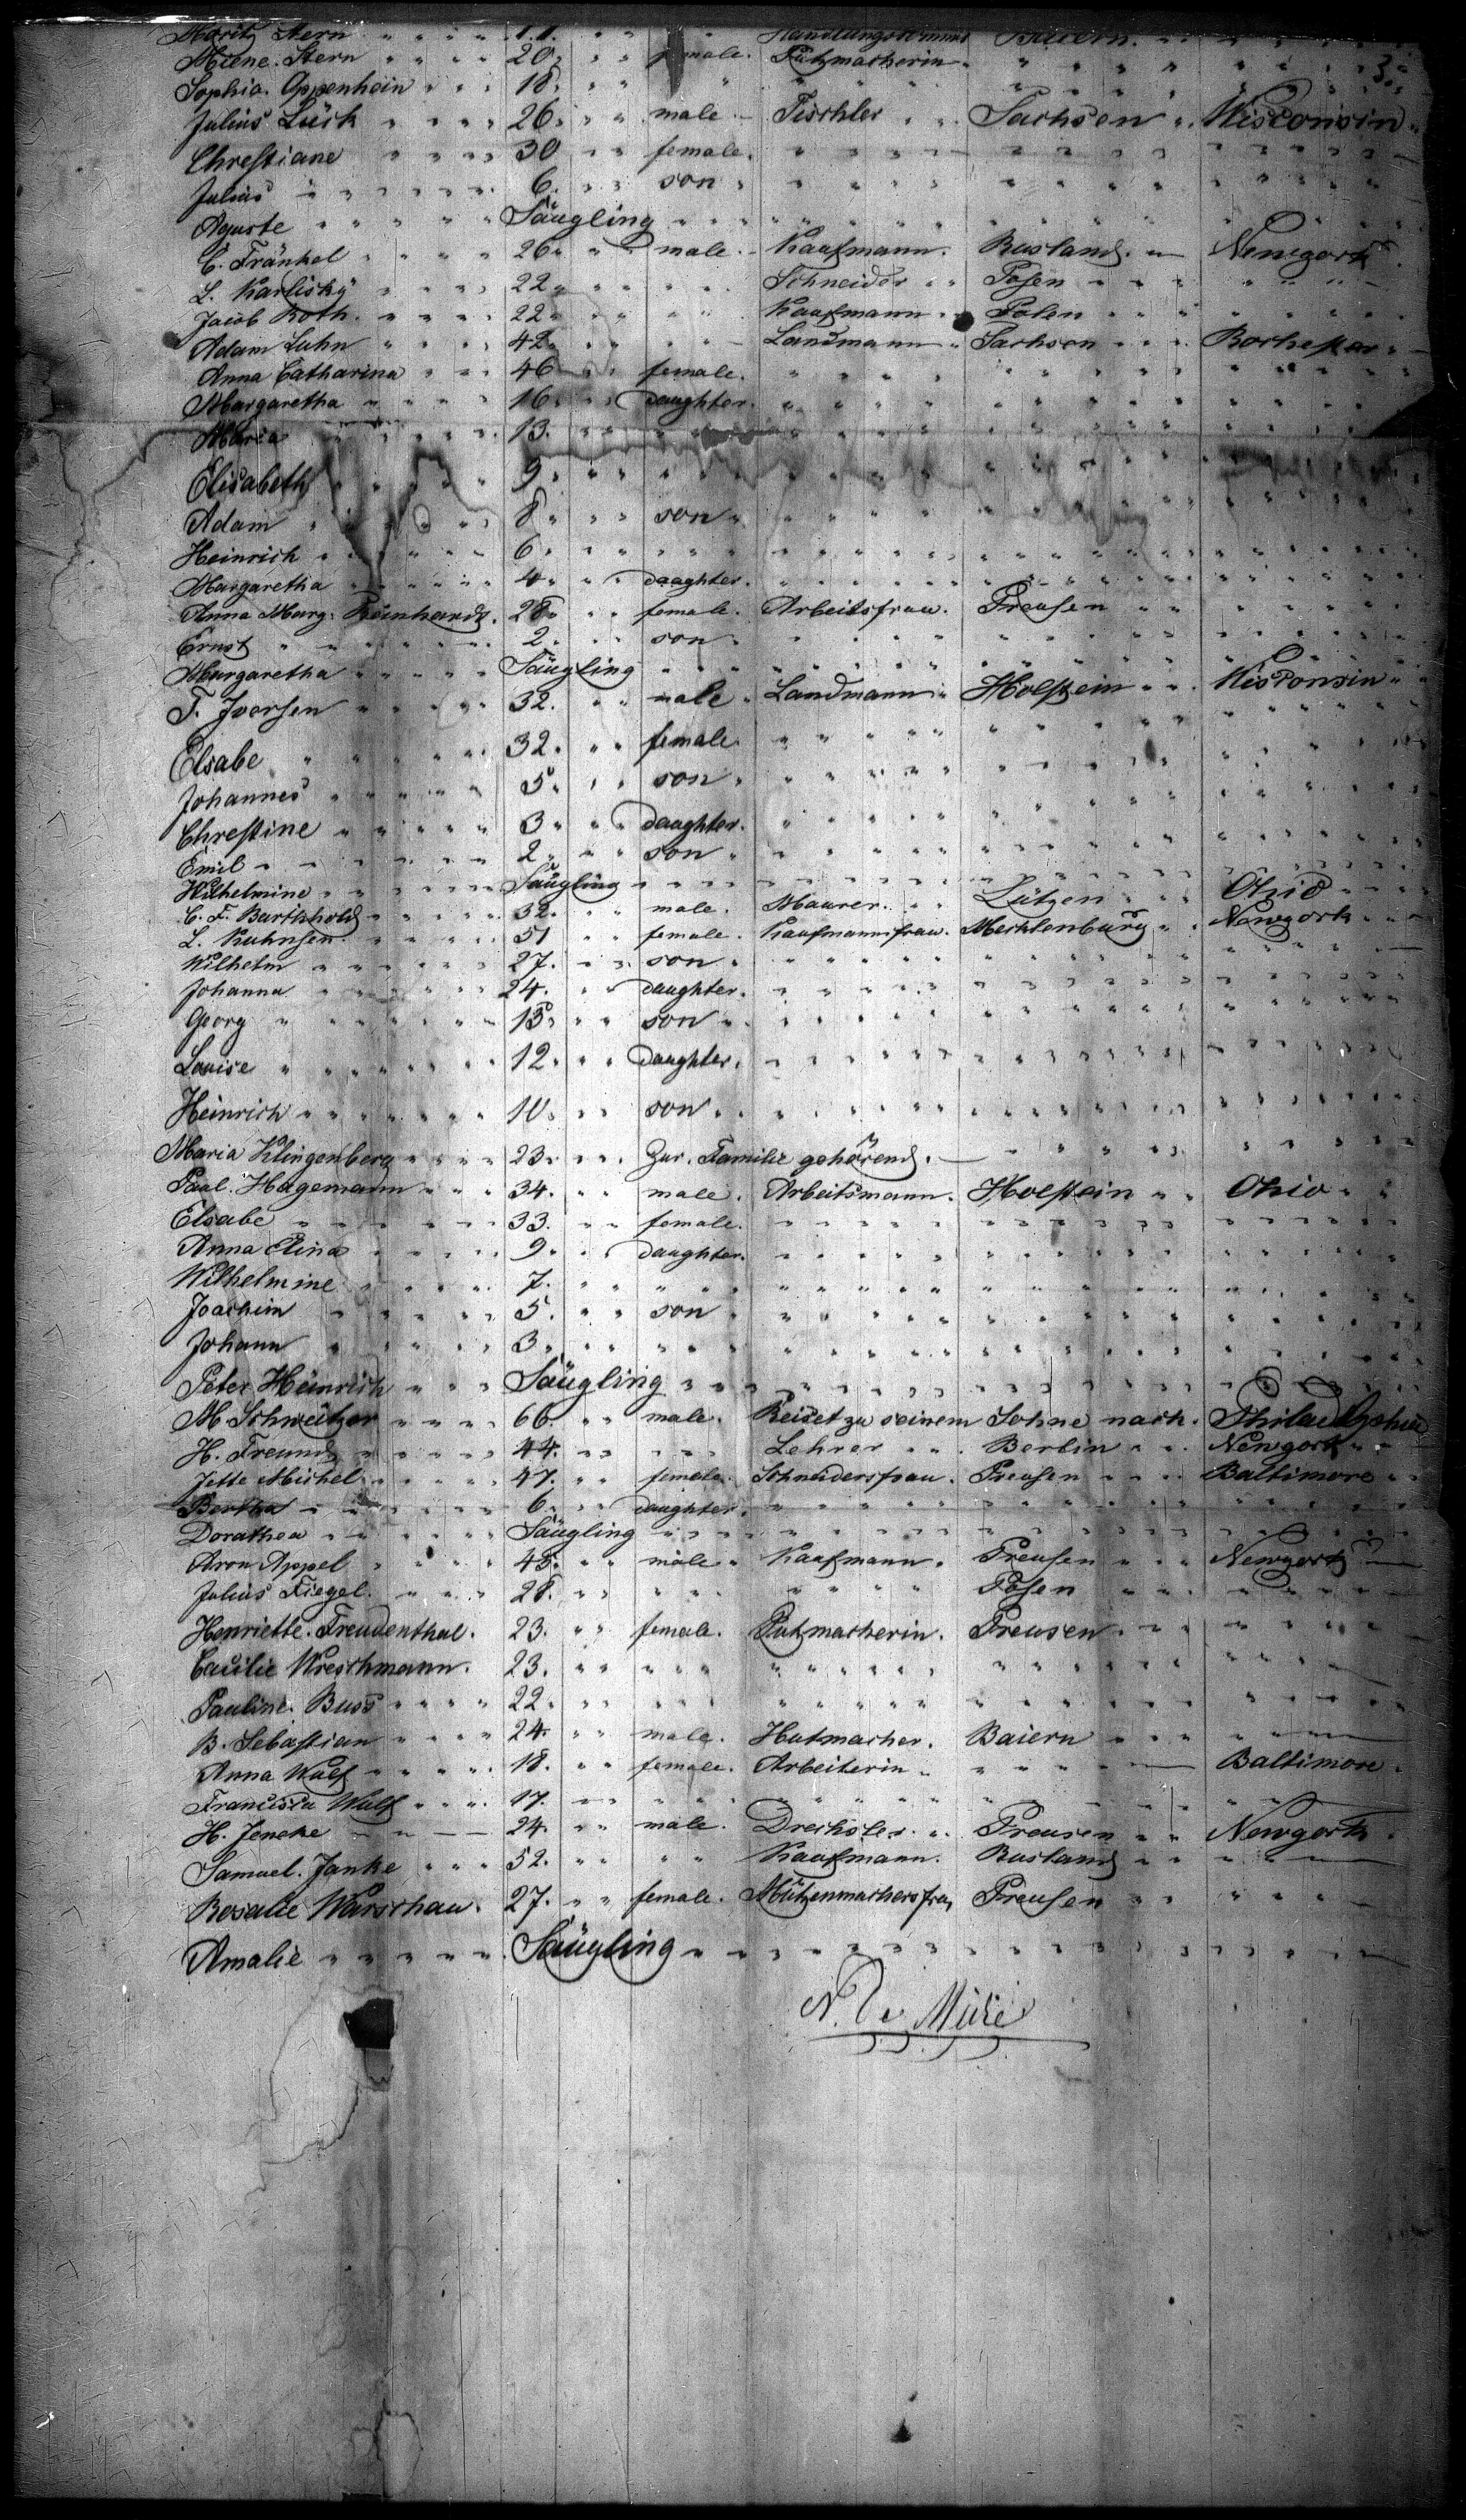 Moritz Stern " " " " 11. " " " Handlungscommis Baiern. " " " "
Miene. Stern " " " " 20. " " female. Putzmacherin " " " " " " 3.
Sophia. Oppenhein " " " 18. " " " " " " " " "
Julius Lück " " " " 26. " " male Tischler " " Sachsen " " Wisconsin "
Chrestiane " " " " 30 " " female. " " " " " " " "
Julius " " " " " " 6. " " son " " " " " " " "
Aguste " " " " " Säugling " " " " " " " "
C. Fränkel " " " " 26. " " male. Kaufmann. Rusland. " Newyork
L. Karlisky " " " " 22. " " " " Schneider " " Posen " " " " "
Jacob Roth. " " " " 22. " " " " Kaufmann " Polen " " " " "
Adam Luhn " " " " 42. " " " " Landmann " Sachsen " " " Rochester "
Anna Catharina " " " 46 " " female. " " " " " " " "
Margaretha " " " " 16. " " daughter. " " " " " " " "
Maria " " " " " 13. " " " " " " " " " "
Elisabeth " " " " " 9. " " " " " " " " " "
Adam " " " " " 8. " " son " " " " " " " "
Heinrich " " " " " 6. " " " " " " " " " "
Margaretha " " " " " 4. " " daughter. " " " " " " " "
Anna Marg. Reinhardt. 28. " " female. Arbeitsfrau. Preusen " " " "
Ernst " " " " " 2. " " son " " " " " " " "
Margaretha " " " " " Säugling " " " " " " " "
T. Joersen " " " " " 32. " " male " Landmann " Holstein " " Wisconsin " "
Elsabe " " " " " 32. " " female. " " " " " " " "
Johannes " " " " " 5. " " son " " " " " " " "
Chrestine " " " " " 3. " " daughter. " " " " " " " "
Emil " " " " " 2. " " son " " " " " " " "
Wilhelmine " " " " " Säugling " " " " " " " "
C. F. Barthhold " " " " 32. " " male. Maurer " " Lützen " " Ohio " " "
L. Kuhnsen. " " " " 51 " " female. Kaufmannsfrau. Mecklenburg " " Newyork " " "
Wilhelm " " " " " 27. " " son " " " " " " " "
Johanna " " " " " 24. " " daughter. " " " " " " " "
Georg " " " " " 15. " " son " " " " " " " "
Louise " " " " " 12. " " daughter. " " " " " " " "
Heinrich " " " " " 10. " " son " " " " " " " "
Maria Klingenberg " " " " 23. " " Zur. Familie gehörend. " " " " " "
Paul. Hagemann " " " 34. " " male. Arbeitsmann. Holstein " " Ohio " "
Elsabe " " " " " 33. " " female. " " " " " " " "
Anna Elina " " " " 9. " " daughter. " " " " " " " "
Wilhelmine " " " " 7. " " " " " " " " " "
Joachim " " " " " 5. " " son " " " " " " " "
Johann " " " " " 3. " " " " " " " " " "
Peter Heinrich " " " Säugling " " " " " " " "
M. Schweitzer " " " " 66. " " male. Reiset zu seinem Sohne nach. Philadelphia
H. Freund " " " " 44. " " " " Lehrer " " Berlin " " Newyork " "
Jette Michel " " " " 47. " " female. Schneidersfrau. Preusen " " " Baltimore " "
Bertha " " " " " 6. " " daughter. " " " " " " " "
Dorathea " " " " " Säugling " " " " " " " "
Aron Appel " " " " 45. " " male " Kaufmann. Preusen " " " Newyork
Julius Fiegel. " " " " 28. " " " " " " " " Posen " " " " "
Henriette. Freudenthal. 23. " " female. Putzmacherin. Preusen " " " " "
Cacilie Wreschmann. 23. " " " " " " " " " " " "
Pauline. Buss " " " " 22. " " " " " " " " " " " "
B. Sebastian " " " " 24. " " male. Hutmacher. Baiern " " " " "
Anna Wulf " " " " 18. " " female. Arbeiterin " " " " " Baltimore.
Francisca Wulf " " " 17. " " " " " " " " " " " "
H. Jencke " " 24. " " male. Drechsler. " Preusen " " Newyork.
Samuel. Janke " " " 52. " " " " Kaufmann. Rusland " " " "
Rosalie Warschau. 27. " " female. Mützenmachersfrau Preusen " " " "
Amalie " " " " " Säugling " " " " " " " "